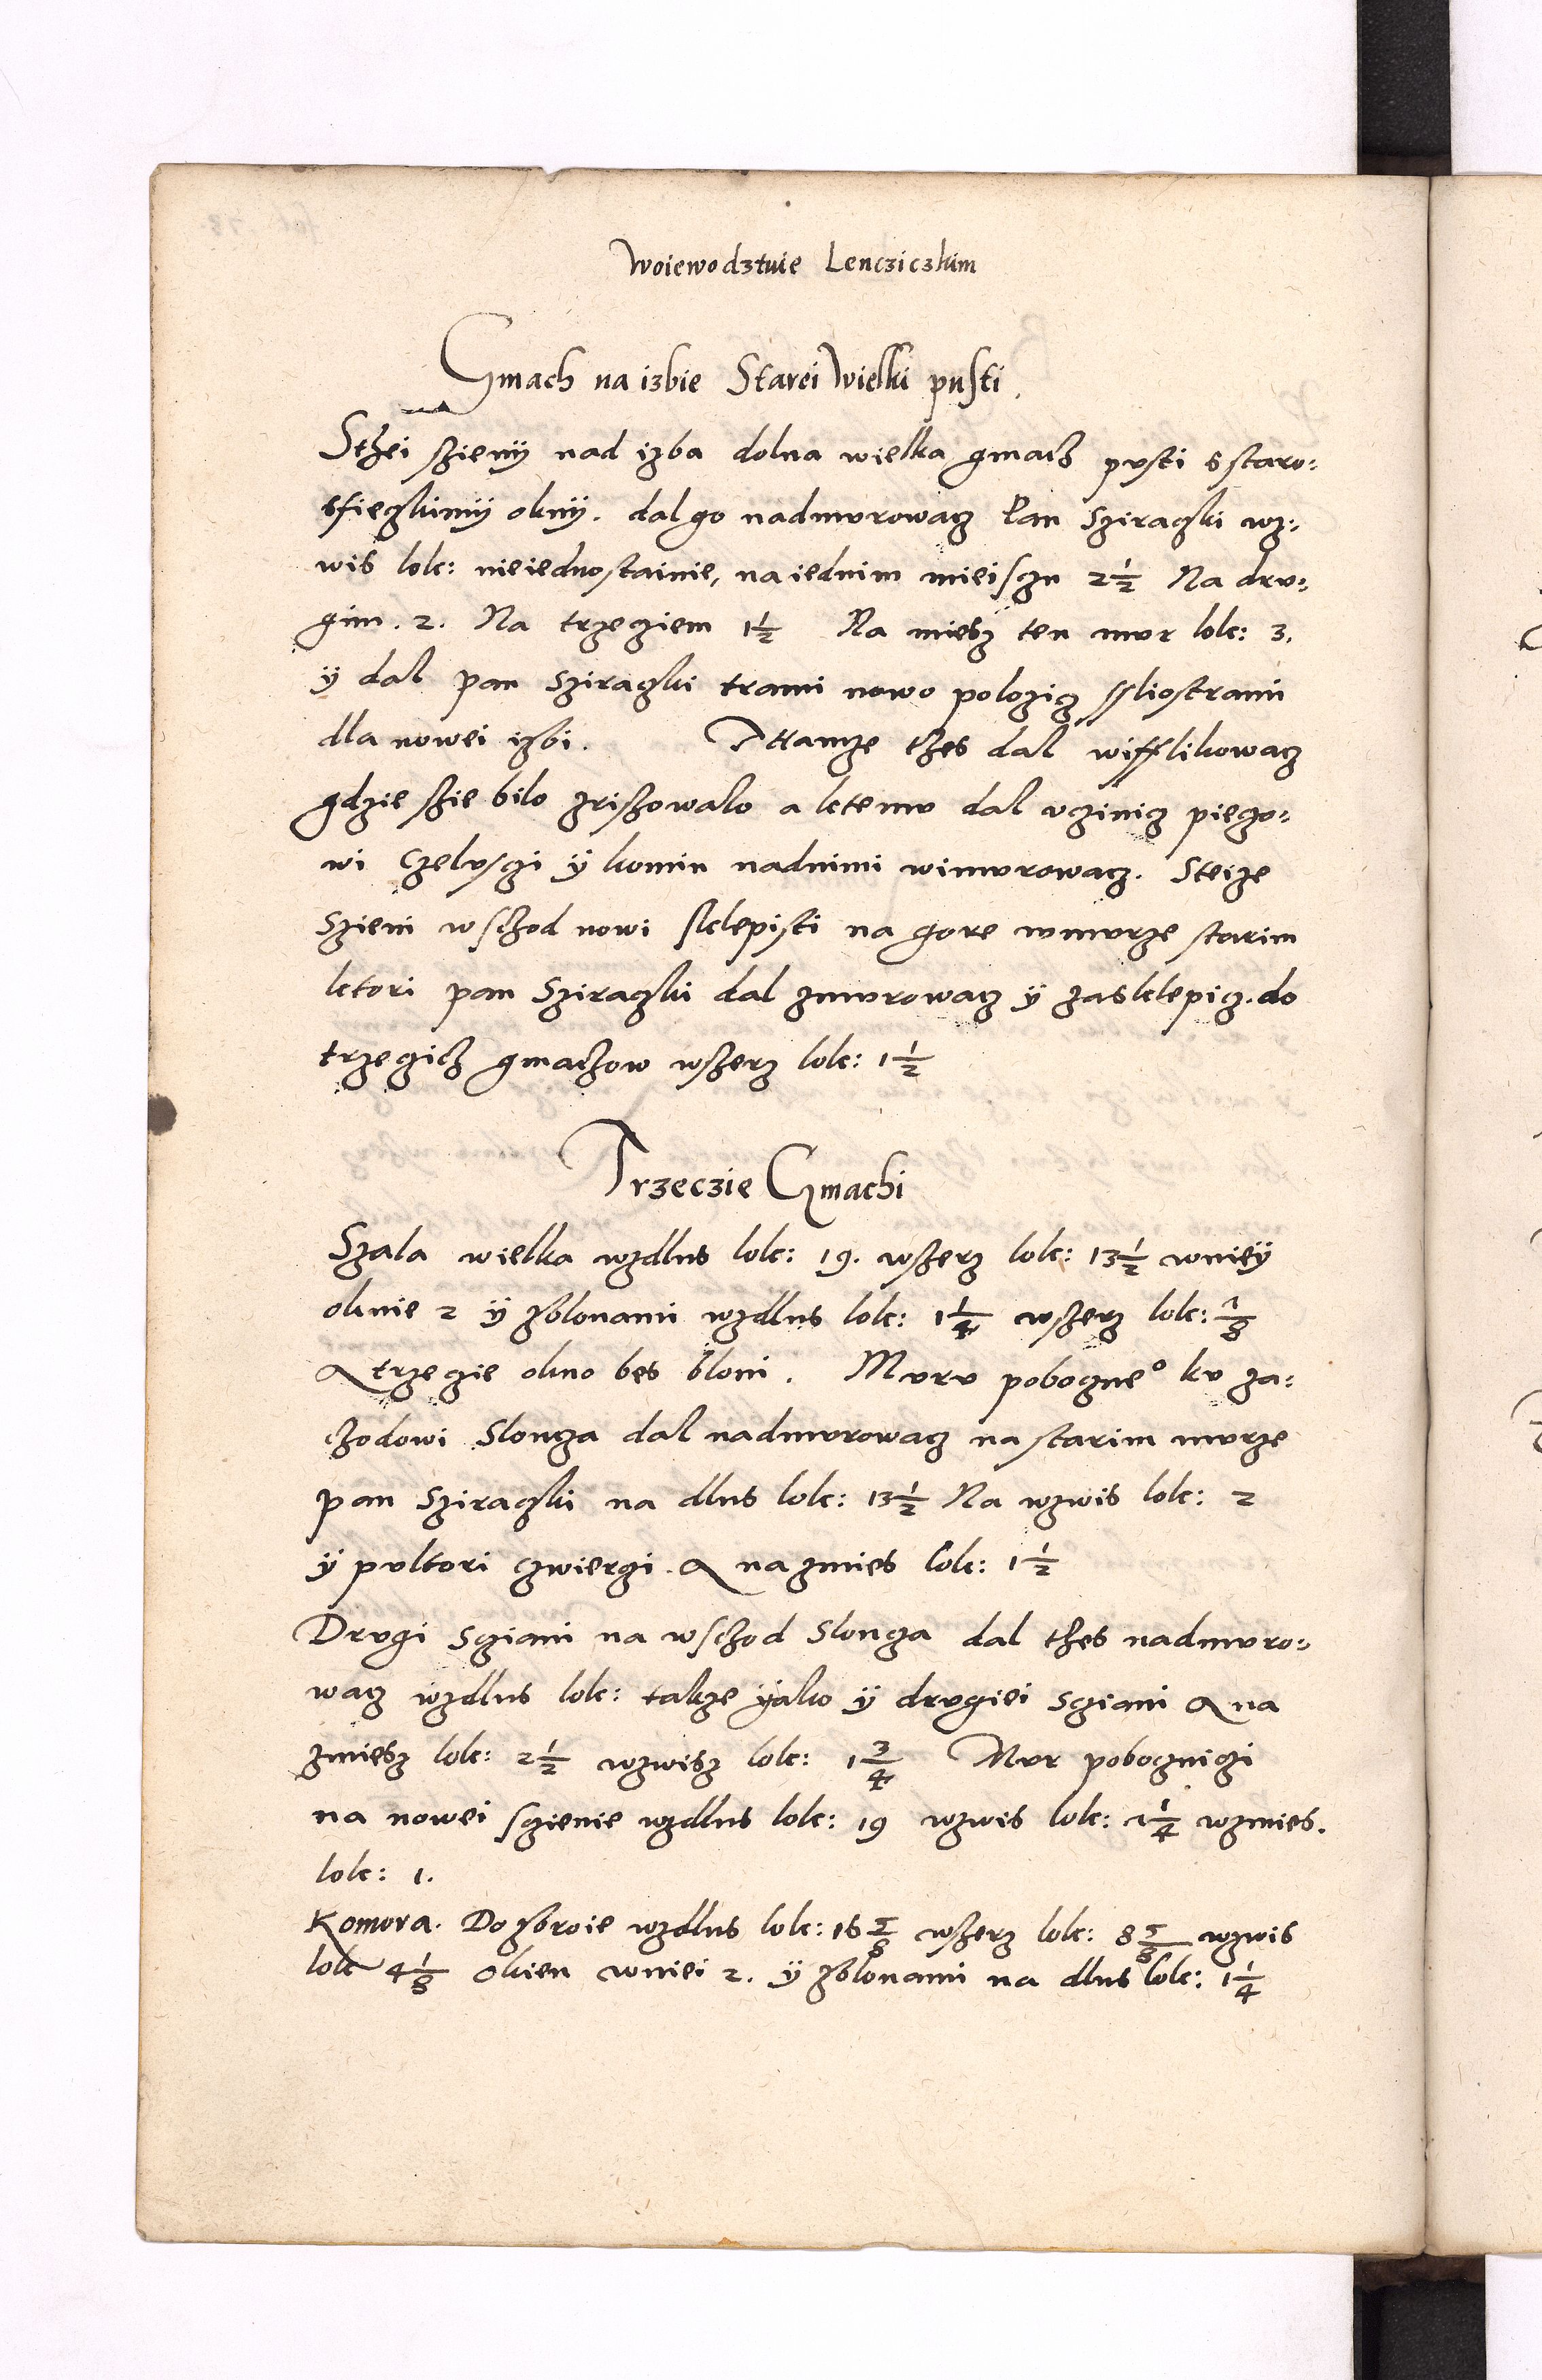 Woiewodztwie Lencziczkim
Gmach na izbie Starei Wielki pusti.
Sthei szieny nad izba dolna wielka gmach pvsti s staro=
sfieczkimy okny. dal go nadmvrowacz Pan Sziraczki wz=
wis lok: nieiednostainie, na iednim mieisczu 2½ Na drv=
gim. 2. Na trzecziem 1½ Na miesz ten mvr lok: 3.
y dal pan Sziraczki trami nowo polozicz ssliostrami
dla nowei izbi. Ttamze thes dal wifflikowacz
gdzie szie bilo zriszowalo a ktemv dal vczinicz pieczo=
wi Czelvsczi ÿ komin nadnimi wimvrowacz. Steize
Szieni wschod nowi sklepisti na gore wmvrze starim
ktori pan Sziraczki dal zmvrowacz ÿ zasklepicz. do
trzeczich gmachow wszerz lok: 1½
Trzeczie Gmachi
Szala wielka wzdlus lok: 19. wszerz lok: 13½ wnieÿ
oknie 2 ÿ zblonami wzdlus lok: 1¼ wszerz lok: ⅞
A trzeczie okno bes bloni. Mvrv pobocznᵉ° kv za=
chodowi Sloncza dal nadmvrowacz na starim mvrze
pan Sziraczki na dlus lok: 13½ Na wzwis lok: 2
ÿ pvltori czwierczi. A na zmies lok: 1½
Drvgi Scziani na wschod Sloncza dal thes nadmvro=
wacz wzdlus lok: takze ÿako ÿ drvgiei Scziani A na
zmiesz lok: 2½ wzwisz lok: 1¾ Mvr poboczniczi
na nowei sczienie wzdlus lok: 19 wzwis lok: 2¼ wzmies.
lok: 1.
Komora. Do zbroie wzdlus lok: 16⅝ wszerz lok: 8⅝ wzwis
lok 4⅛ Okien wniei 2. ÿ zblonami na dlus lok: 1¼